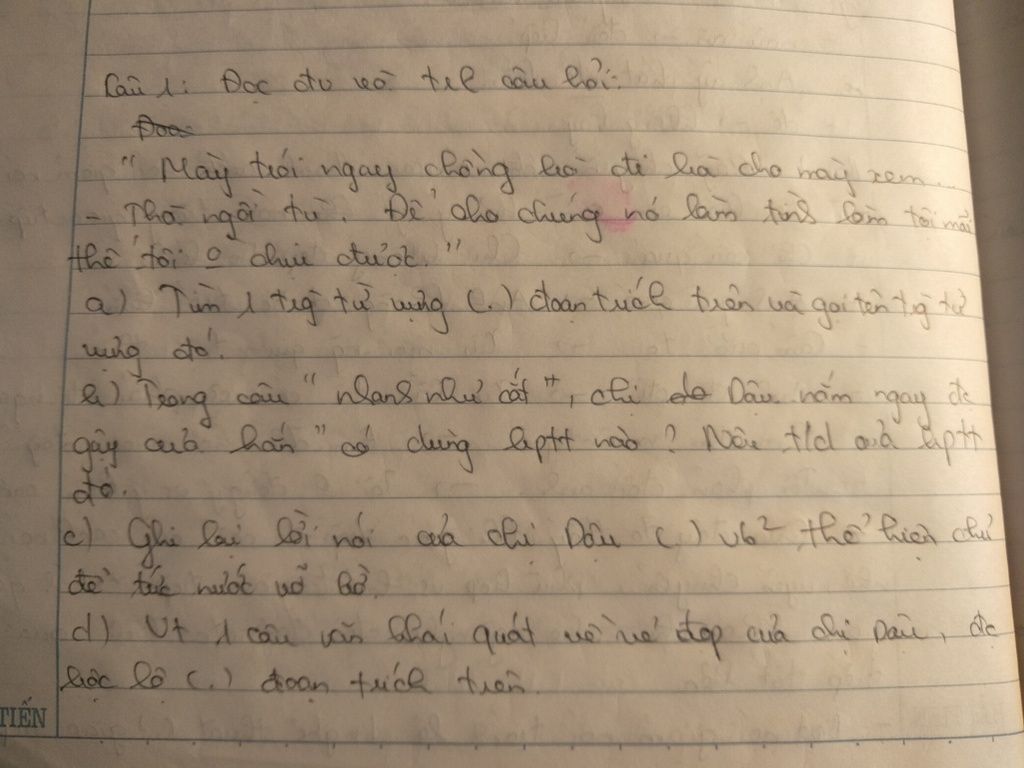 Câu 1: Đọc đv và tlch câu hỏi:
Đoạ
"Mày trói ngay chồng bà đi bà cho mày xem...
- Thà ngồi tù. Để cho chúng nó làm tình làm tội mãi
thế tôi 0 chịu được."
a) Tìm 1 trg từ vựng (.) đoạn trích trên và gọi tên trg từ
vựng đó.
b) Trong câu "nhanh như cắt", chị Dậu nắm ngay đc
gậy của hắn" có dùng bptt nào? Nêu t/d của bptt
đó.
c) Ghi lại lời nói của chị Dậu (.) vb² thể hiện chủ
đề tức nước vỡ bờ.
d) Vt 1 câu văn khái quát về vẻ đẹp của chị Dậu, đc
bộc lộ (.) đoạn trích trên.
TIẾN